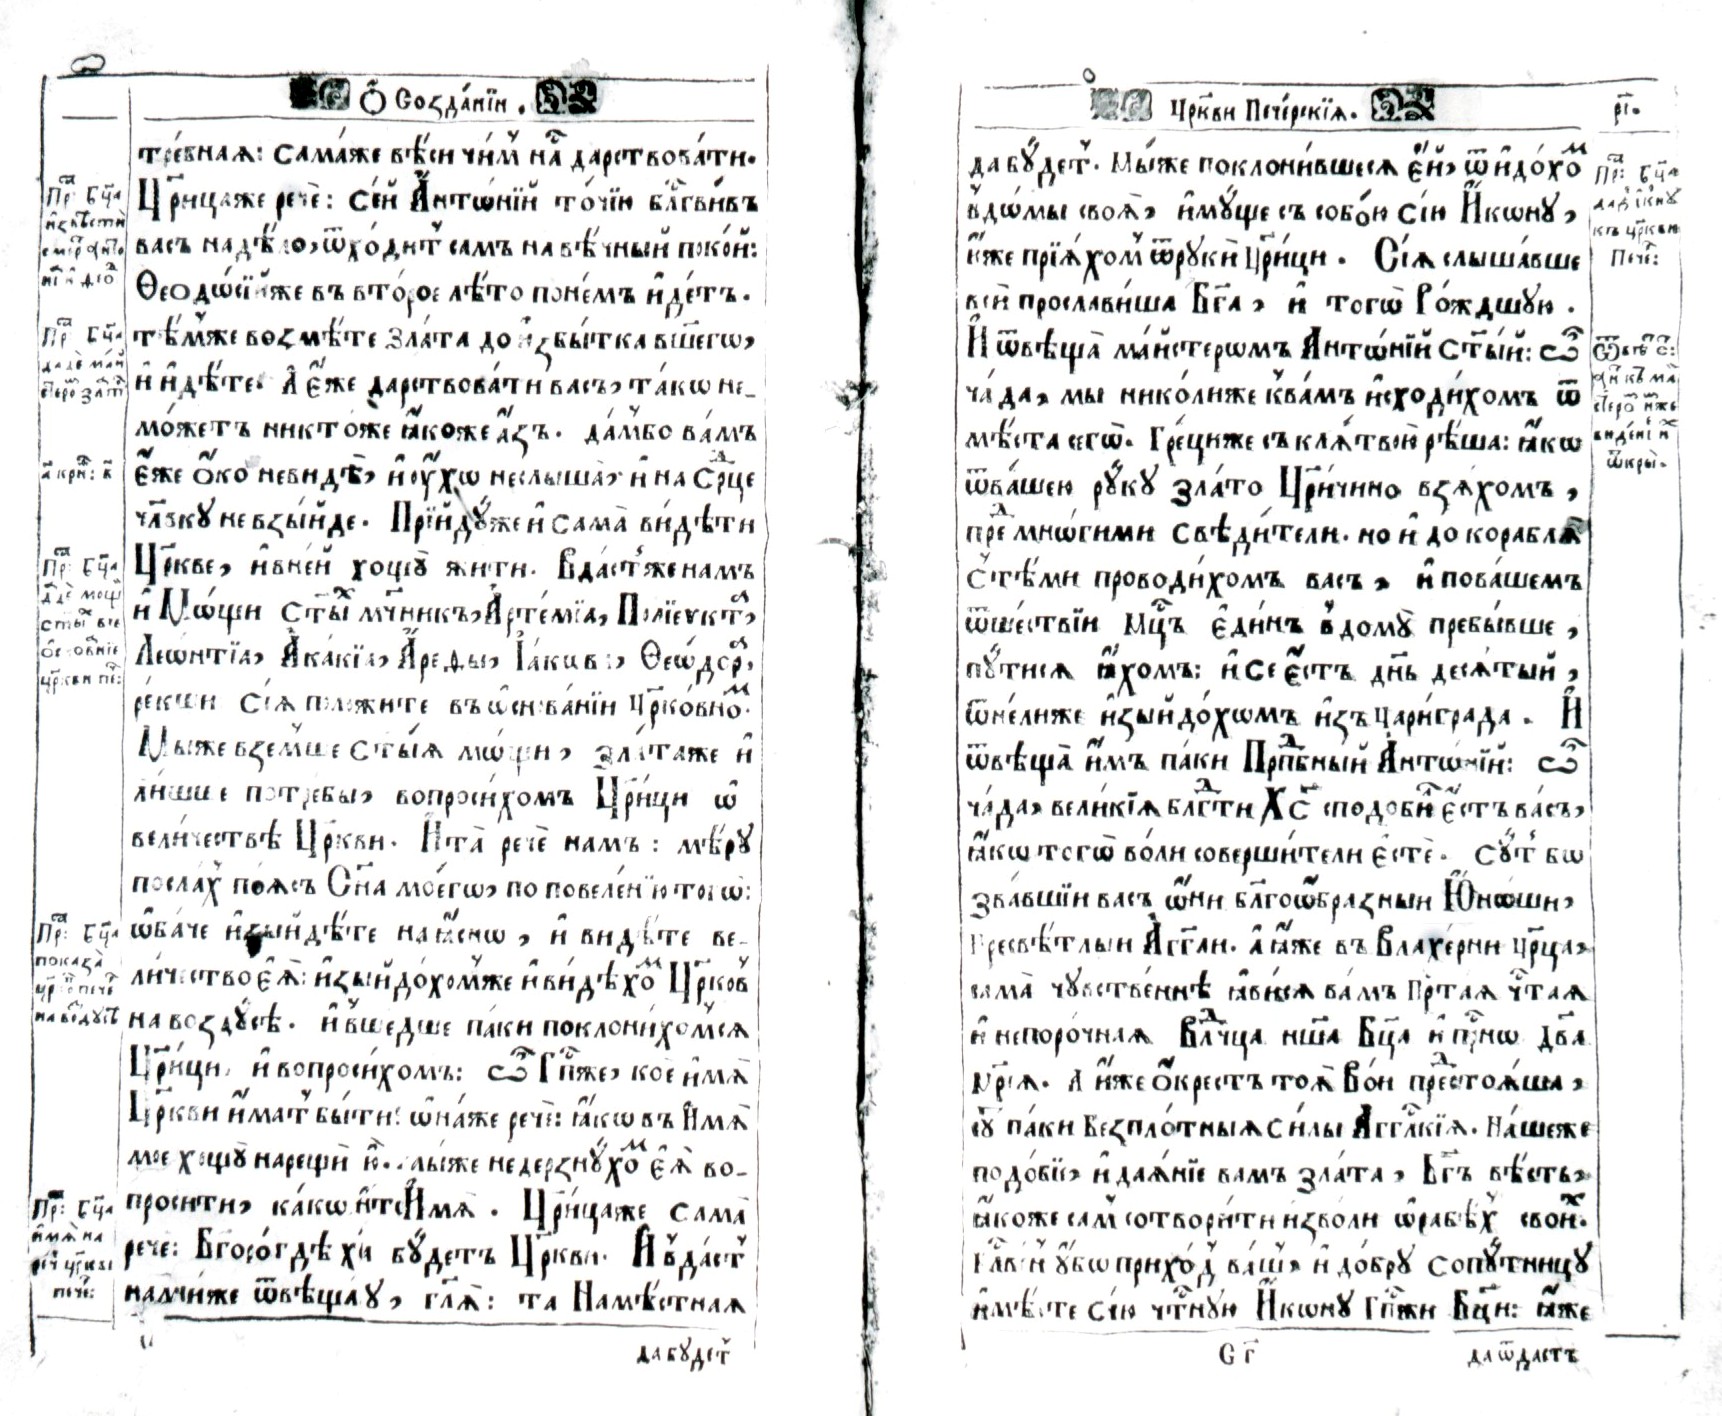 Ѽ Созда́нїи.
тре́бная: сама́же вѣ́си чи́мъ на́съ да́рствовати.
Цр҃и́цаже речѐ: се́й А҆нтѡ́нїй то́чїю блгⷭ҇ви́въ
ва́съ на дѣ́ло, ѿхо́дитъ са́мъ на вѣ́чный поко́й:
Ѳеодѡ́сїйже въ второ́е лѣ́то по не́мъ и҆́детъ.
тѣ́мже возмѣ́те зла́та до и҆збы́тка ва́шегѡ,
и҆ и҆дѣ́те. А҆ є҆́же да́рствовати ва́съ, та́кѡ не-
мо́жетъ никто́же ꙗ҆́коже а҆́зъ. да́мбо ва́мъ
є҆́же ѻ҆́ко не ви́дѣ, и҆ оу҆́хо не слы́ша, и҆ на ср҃це
чл҃вку не взы́йде. Прїйду́же и҆ сама̀ ви́дѣти
Цр҃кве, и҆ в не́й хощу̀ жи́ти. Вда́стъже на́мъ
и҆ Мо́щи ст҃ы́хъ мч҃никъ, А҆рте́мїа, Полїе́укта,
Леѡ́нтїа, А҆ка́кїа, А҆ре́ѳы, І҆а́кѡва, Ѳео́дѡра,
ре́кши сїя̀ положи́те въ ѡ҆снова́нїи цр҃ко́вномъ.
Мы́же взе́мше ст҃ы́я мо́щи, зла́таже и҆
ли́шше потре́бы, вопроси́хомъ Цр҃и́цы ѡ҆
вели́чествѣ Цр҃кви. И҆ та̀ речѐ на́мъ: мѣ́ру
посла́хъ по́ясъ Сн҃а моегѡ̀, по повеле́нїю тогѡ̀:
ѡ҆ба́че и҆зыйдѣ́те на ꙗ҆́снѡ, и҆ ви́дѣте ве-
ли́чество є҆я̀: и҆зыйдо́хомже и҆ ви́дѣхомъ Цр҃ковъ
на возду́сѣ. и҆ вше́дше па́ки поклони́хомся
Цр҃и́цы, и҆ вопроси́хомъ: Ѽ Гп҃же, ко́е и҆́мя
Цр҃кви и҆́мать бы́ти? ѡ҆на́же речѐ: ꙗ҆́кѡ въ И҆́мя
моѐ хощу̀ нарещѝ ю҆̀. мы́же не дерзну́хомъ є҆я̀ во-
проси́ти, ка́кѡ и҆́мѧ. Цр҃и́цаже сама̀
речѐ: Бг҃оро́дѣчи бу́детъ Цр҃кви. И҆ вда́стъ
на́мъ, гл҃я: та̀ Намѣ́стная
да бу́детъ
Прⷭ҇: Бц҃а
и҆звѣстѝ
Прⷭ҇: Бц҃а
дадѐ ма́й
а҃ крⷩ҇: в҃
Прⷭ҇: Бц҃а
дадѐ мощ
ст҃ы́хъ въ
ѡ҆снова́нїе
цр҃кви пе́ч:
Прⷭ҇: Бц҃а
показа̀
цр҃ко пече
на возду́сѣ
Прⷭ҇: Бц҃а
и҆́мя на
речѐ цр҃кви
пече́:
Цр҃кви Пече́рскїя.
р҃і.
да бу́детъ. Мы́же поклони́вшеся є҆́й, ѿидо́хомъ
в до́мы своя̀, и҆му́ще съ собо́ю сїю̀ И҆кѡ́ну,
ю҆́же прїя́хомъ ѿ рукѝ Цр҃и́цы. Сїя̀ слы́шавше
всѝ просла́виша Бг҃а, и҆ тогѡ̀ Ро́ждшую.
И҆ ѿвѣща̀ ма́йстерѡмъ А҆нтѡ́нїй ст҃ы́й: Ѽ
ча́да, мы̀ николи́же к ва́мъ и҆сходи́хомъ ѿ
мѣ́ста сегѡ̀. Гре́циже съ кля́твою рѣ́ша: ꙗ҆́кѡ
ѿ ва́шею ру́ку зла́то Цр҃и́чино взя́хомъ,
пред мнѡ́гими свѣди́тели. но и҆ до корабля̀
с тѣ́ми проводи́хомъ ва́съ, и҆ по ва́шемъ
ѿше́ствїи Мцⷭ҇ъ є҆ди́нъ в дому̀ пребы́вше,
пути́ся ꙗ҆́хомъ: и҆ сѐ є҆́сть дн҃ь деся́тый,
ѿне́лиже и҆зыйдо́хѡмъ и҆зъ Царигра́да. И҆
ѿвѣща̀ и҆́мъ па́ки Прпⷣбный А҆нтѡ́нїй: Ѽ
ча́да, вели́кїя блг҃ти Хс҃ сподо́билъ є҆́стъ ва́съ,
ꙗ҆́кѡ тогѡ̀ во́ли соверши́тели є҆стѐ. Су́ть бѡ
зва́вшїи ва́съ ѡ҆́ни бл҃гоѡ҆бра́зныи Ю҆́нѡши,
Пресвѣ́тлыи А҆́гг҃ли. а҆ ꙗ҆́же въ Влахе́рни цр҃ца,
сама̀ чу́вственнѣ ꙗ҆ви́ся ва́мъ Прⷭ҇тая чⷭ҇тая
и҆ непоро́чная Влⷣчца на́ша Бц҃а и҆ пр҃нѡ Дв҃а
Мр҃і́я. А҆ и҆́же ѻ҆́крестъ тоя̀ Во́и предстоя́ша,
су́ть па́ки Безпло́тныя си́лы А҆́гг҃лскїя. На́шеже
подо́бїе, и҆ дая́нїе ва́мъ зла́та, Бг҃ъ вѣ́сть,
ꙗ҆́коже са́мъ сотвори́ти и҆зво́ли ѡ҆ рабѣ́хъ свои́хъ.
Бл҃ве́нъ у҆́бѡ прихо́дъ ва́шъ, и҆ до́бру сопу́тницу
и҆мѣ́ете сїю̀ чⷭ҇тну́ю И҆кѡ́ну Гп҃жи Бц҃и: ꙗ҆́же
С г҃
да ѿда́стъ
Прⷭ҇: Бц҃а
к цр҃кви
Пече́:
ви́дѣнїи
ѿкры̀.